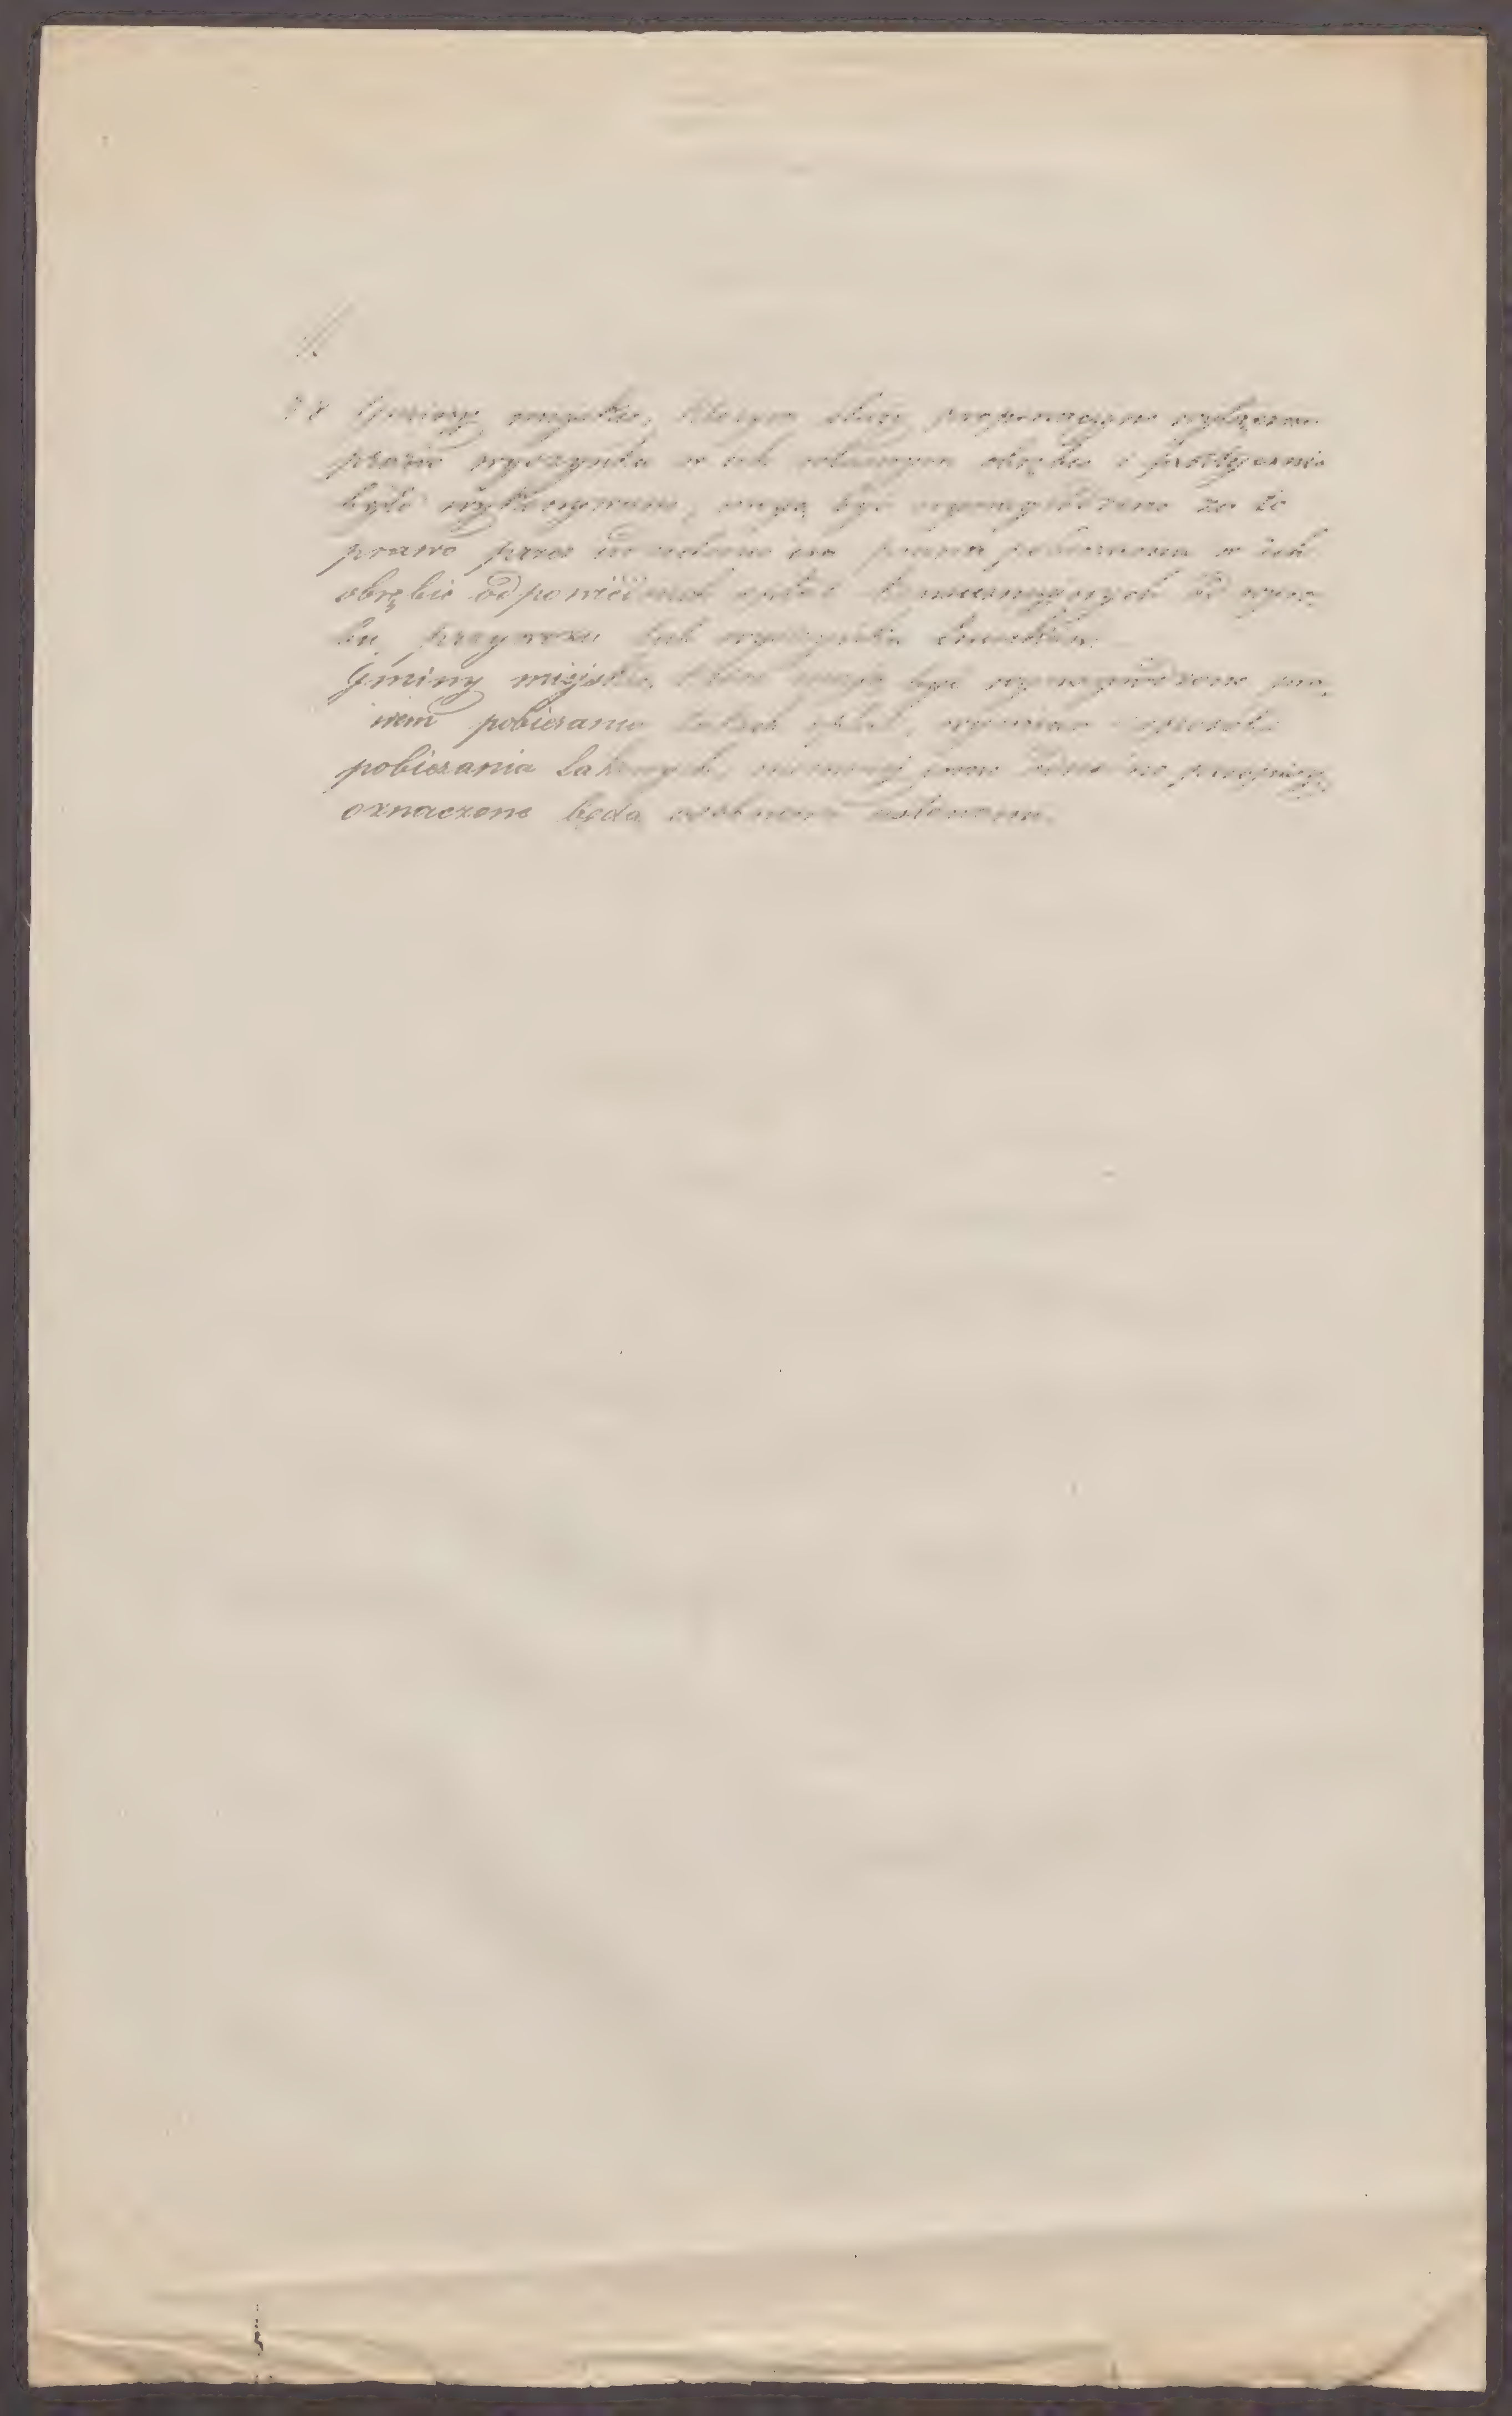 Gminy miejskie, którym służy propinacyjne wyłączne
prawo wyszynku w ich własnym obrębie i faktycznie
było wykonywane, mają być wynagrodzone za to
prawo przez udzielenie im prawa pobierania w ich
obrębie odpowiednich opłat konsumcyjnych od wyro-
bu, przywozu lub wyszynku trunków.
Gminy miejskie, które mają być wynagrodzone pra-
wem pobierania takich opłat, wymiar i sposób
pobierania takowych, niemniej inne przepisy,
oznaczone będą osobnemi ustawami.